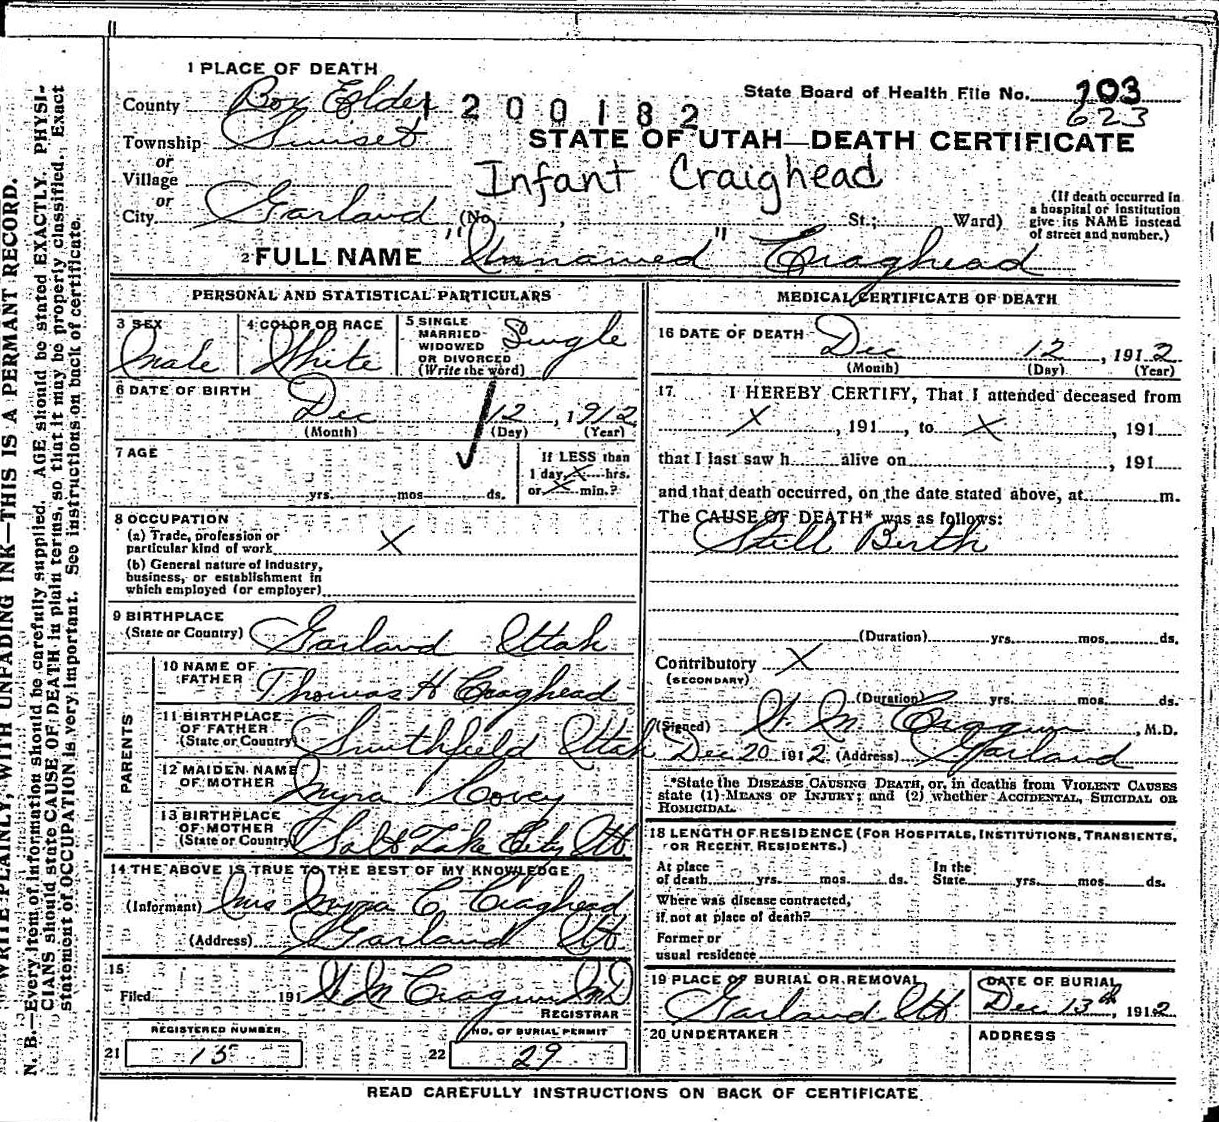 1 PLACE OF DEATH
County Box Elder
1200182
State Board of Health File No. 203
623
Township Sunset
STATE OF UTAH—DEATH CERTIFICATE
or
Village
Infant Craighead
or
City Garland (No. , St.; Ward)
(If death occurred in a hospital or institution give its NAME instead of street and number.)
2 FULL NAME "Unnamed" Craghead
PERSONAL AND STATISTICAL PARTICULARS
3 SEX
Male
4 COLOR OR RACE
White
5 SINGLE
MARRIED
WIDOWED
OR DIVORCED
(Write the word)
Single
6 DATE OF BIRTH
Dec 12, 1912
(Month) (Day) (Year)
7 AGE
yrs. mos. ds.
If LESS than
1 day, X hrs.
or X min.?
8 OCCUPATION
(a) Trade, profession or
particular kind of work X
(b) General nature of industry,
business, or establishment in
which employed (or employer)
9 BIRTHPLACE
(State or Country) Garland Utah
PARENTS
10 NAME OF
FATHER Thomas H Craghead
11 BIRTHPLACE
OF FATHER
(State or Country) Smithfield Utah
12 MAIDEN NAME
OF MOTHER Myra Covey
13 BIRTHPLACE
OF MOTHER
(State or Country) Salt Lake City Ut
14 THE ABOVE IS TRUE TO THE BEST OF MY KNOWLEDGE
(Informant) Mrs Myra C. Craghead
(Address) Garland Ut
15
Filed 191 W M Cragun MD
REGISTRAR
REGISTERED NUMBER
21 15
NO. OF BURIAL PERMIT
22 29
MEDICAL CERTIFICATE OF DEATH
16 DATE OF DEATH
Dec 12, 1912
(Month) (Day) (Year)
17 I HEREBY CERTIFY, That I attended deceased from
X, 191 , to X, 191
that I last saw h alive on , 191
and that death occurred, on the date stated above, at m.
The CAUSE OF DEATH* was as follows:
Still Birth
(Duration) yrs. mos. ds.
Contributory X
(SECONDARY)
(Duration) yrs. mos. ds.
(Signed) W. M. Cragun, M.D.
Dec 20 1912 (Address) Garland
*State the DISEASE CAUSING DEATH, or, in deaths from VIOLENT CAUSES
state (1) MEANS OF INJURY; and (2) whether ACCIDENTAL, SUICIDAL OR
HOMICIDAL.
18 LENGTH OF RESIDENCE (FOR HOSPITALS, INSTITUTIONS, TRANSIENTS,
OR RECENT RESIDENTS.)
At place
of death yrs. mos. ds.
In the
State yrs. mos. ds.
Where was disease contracted,
if not at place of death?
Former or
usual residence
19 PLACE OF BURIAL OR REMOVAL
Garland Ut
DATE OF BURIAL
Dec 13th, 1912
20 UNDERTAKER
ADDRESS
READ CAREFULLY INSTRUCTIONS ON BACK OF CERTIFICATE
WRITE PLAINLY, WITH UNFADING INK—THIS IS A PERMANT RECORD.
N. B.—Every item of information should be carefully supplied. AGE should be stated EXACTLY. PHYSI-
CIANS should state CAUSE OF DEATH in plain terms, so that it may be properly classified. Exact
statement of OCCUPATION is very important. See instructions on back of certificate.